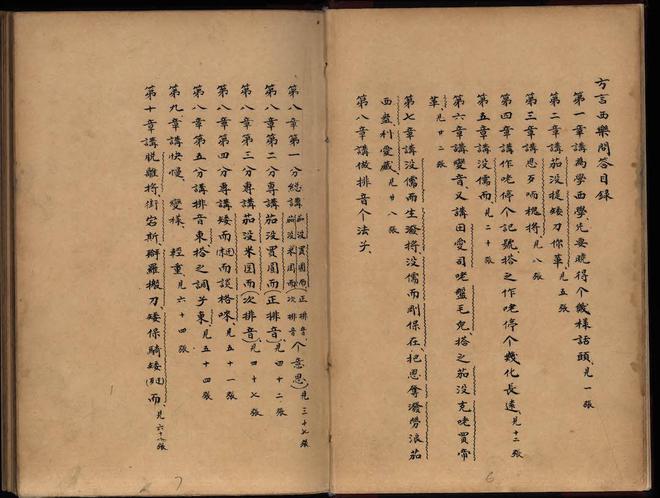 方言西樂問答目錄
第一章講為學西學先要曉得个幾樣話頭、見一張
第二章講茄没提矮刀你革、見五張
第三章講思歹吶槐將、見八張
第四章講作咾停个記號、搭之作咾停个幾化長遠、見十二張
第五章講没儒而、見二十張
第六章講變音、又講田愛司咾盤毛克搭之茄没克咾買帝
革、見二二張
第七章講没儒而生潑將没儒而剛保在、把恩奪潑勞浪茄
西盤利愛感、見廿八張
第八章講做排音个法子、
第八章第一分總講茄没買圓而正排音茄没米囡而次排音个意思、見三十七張
第八章第二分專講茄没買圓而(正排音)見四十二張
第八章第三分專講茄没米囡而(次排音)見四十七張
第八章第四分專講矮而談格咪、見五十一張
第八章第五分講排音東搭之調子東、見五十四張
第九章講快慢、變樣、輕重、見六十四張
第十章講脱離將、街宕斯、辯羅搬刀、矮保騎矮而見六十八張
7
6